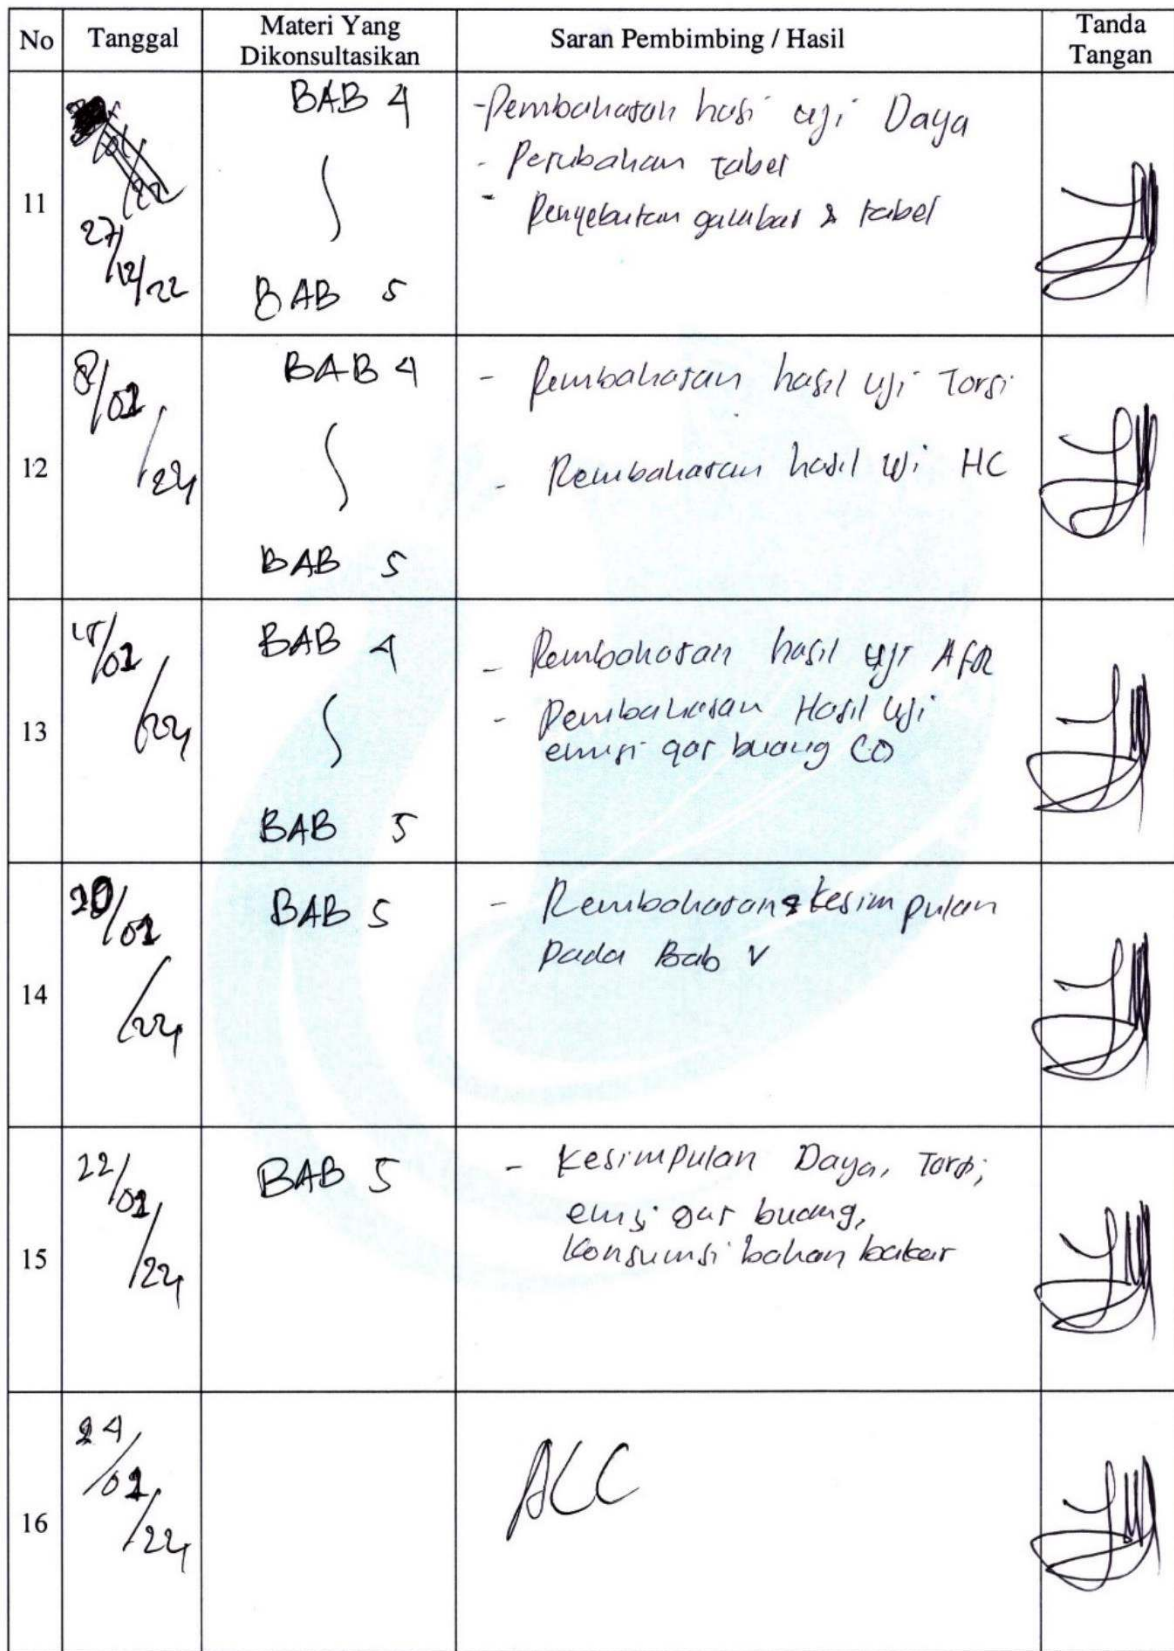 No Tanggal Materi Yang Dikonsultasikan Saran Pembimbing / Hasil Tanda Tangan
11
27/12/22
BAB 4
BAB 5
- Pembahasan hasi uji Daya
- Perubahan tabel
- Penyebutan gambar & tabel
12
8/01/24
BAB 4
BAB 5
- Pembahasan hasil uji Torsi
- Pembahasan hasil uji HC
13
15/01/24
BAB 4
BAB 5
- Pembahasan hasil uji AFR
- Pembahasan Hasil uji
emisi gas buang CO
14
20/01/24
BAB 5
- Pembahasan & kesimpulan
pada Bab V
15
22/01/24
BAB 5
- Kesimpulan Daya, Torsi,
emisi gas buang,
konsumsi bahan bakar
16
24/01/24
ACC